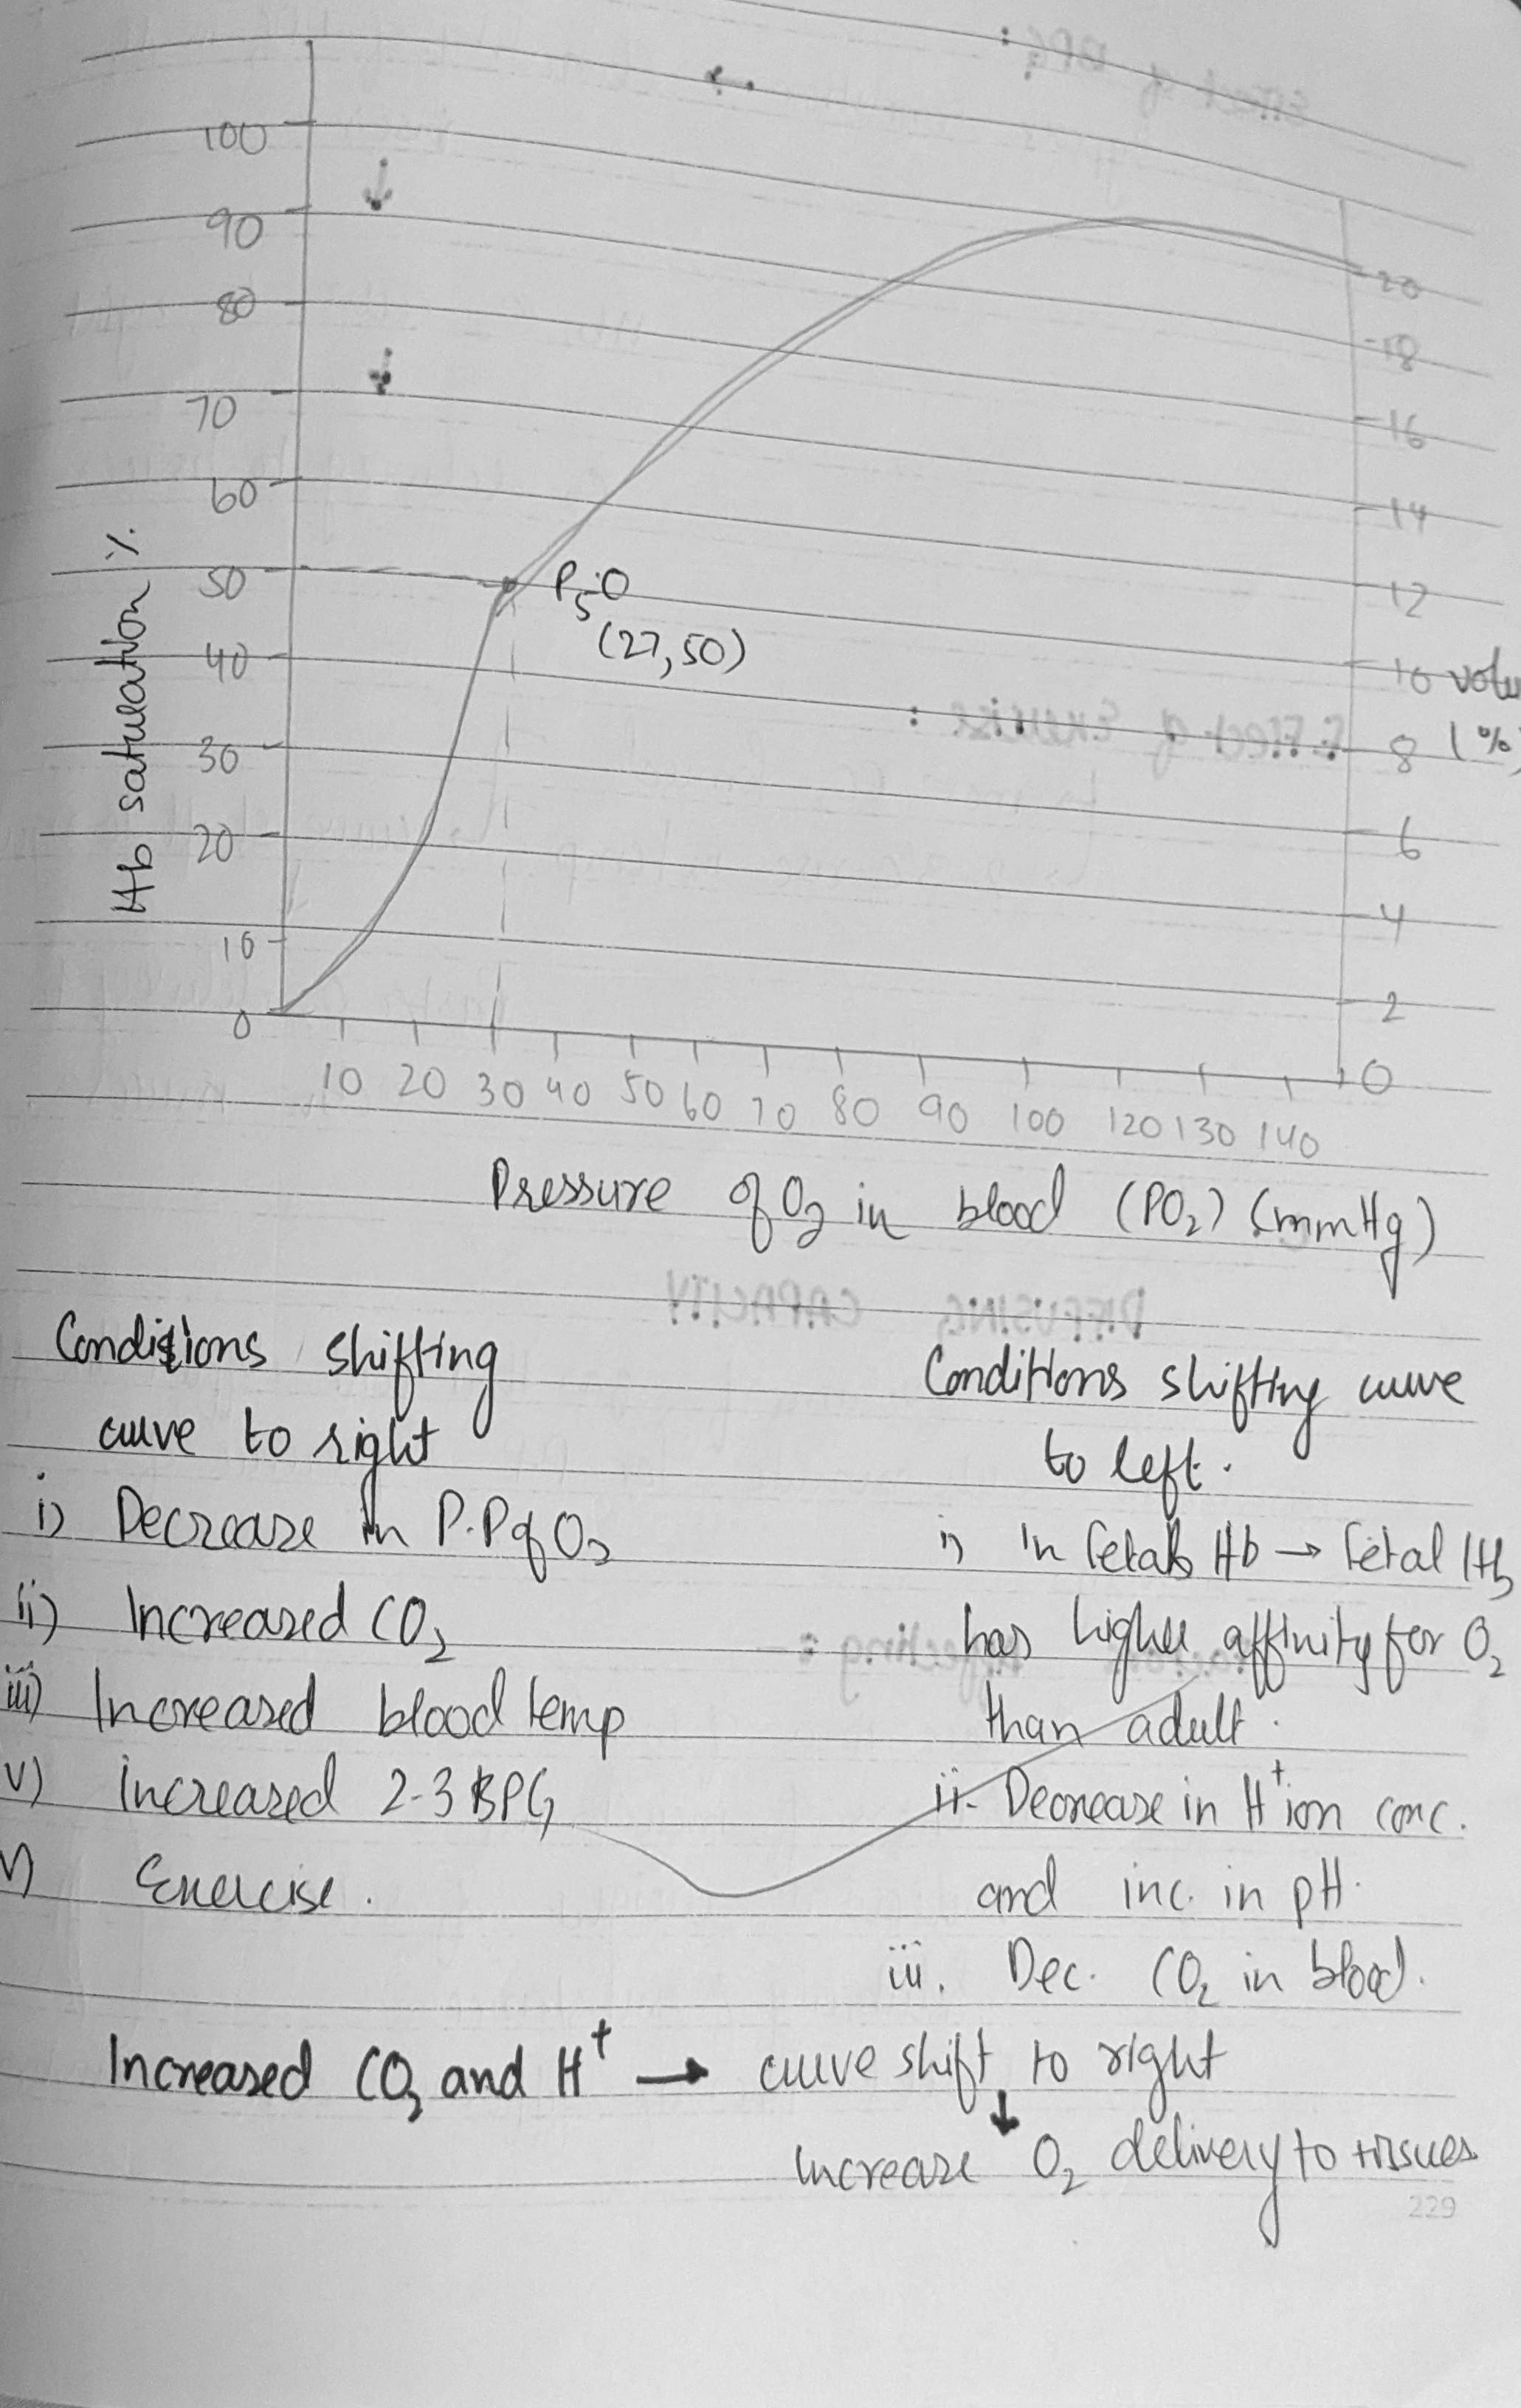 100
90
80
70
60
50
40
30
20
10
0
Hb saturation %
P50
(27,50)
20
18
16
14
12
10
8
6
4
2
0
(%)
10 20 30 40 50 60 70 80 90 100 120 130 140
Pressure of O2 in blood (PO2) (mmHg)
Conditions shifting
curve to right
i) Decrease in P.P of O2
ii) Increased CO2
iii) Increased blood temp
v) increased 2-3 BPG
v) Exercise.
Conditions shifting curve
to left.
i) In fetal Hb → fetal Hb
has higher affinity for O2
than adult.
ii- Decrease in H+ ion conc.
and inc. in pH.
iii. Dec. CO2 in blood.
Increased CO2 and H+ → curve shift to right
↓
increase O2 delivery to tissues
229